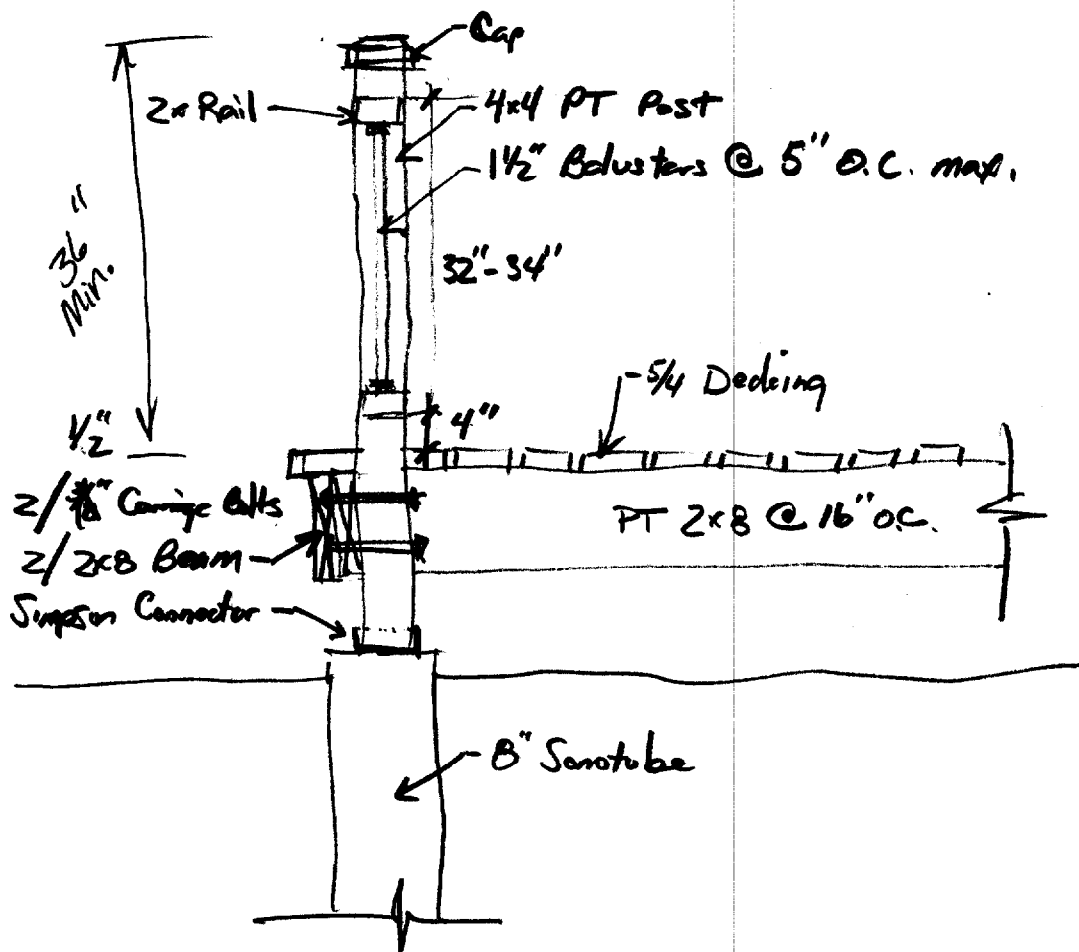 Cap
2x Rail
4x4 PT Post
1½" Balusters @ 5" O.C. max.
36"
Min.
32"-34"
5/4 Decking
4"
½"
2/ Carriage Bolts
PT 2x8 @ 16" O.C.
2/ 2x8 Beam
Simpson Connector
8" Sonotube